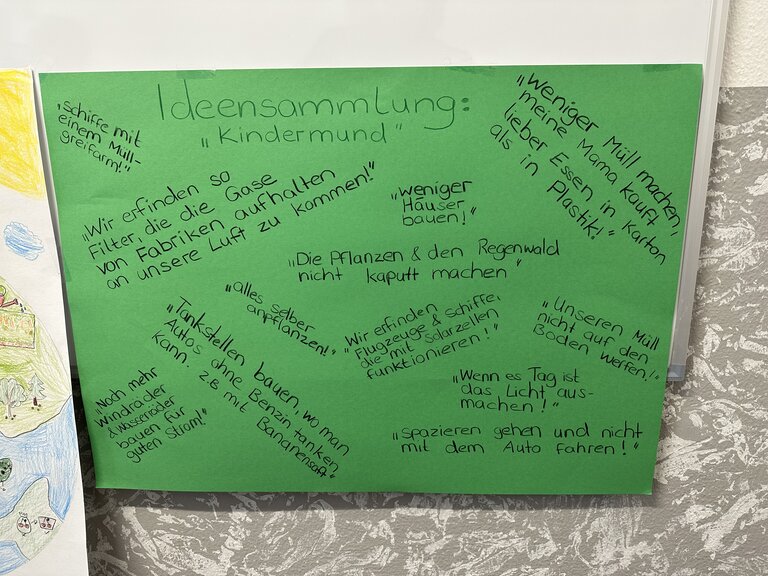 Ideensammlung:
"Kindermund"
"Schiffe mit
einem Müll-
greifarm!"
"Weniger Müll machen,
meine Mama kauft
lieber Essen in Karton
als in
Plastik!"
"Wir erfinden so
Filter, die die Gase
von Fabriken aufhalten
an unsere Luft zu kommen!"
"weniger
Häuser
bauen!"
"Die Pflanzen & den Regenwald
nicht kaputt machen"
"alles selber
anpflanzen!"
"Wir erfinden
Flugzeuge & Schiffe,
die mit Solarzellen
funktionieren!"
"Unseren Müll
nicht auf den
Boden werfen!"
"Tankstellen bauen, wo man
Autos ohne Benzin tanken
kann. z.B. mit
Bananensaft"
"Noch mehr
Windräder
& Wasserräder
bauen für
guten Strom!"
"Wenn es Tag ist
das Licht aus-
machen!"
"Spazieren gehen und nicht
mit dem Auto fahren!"